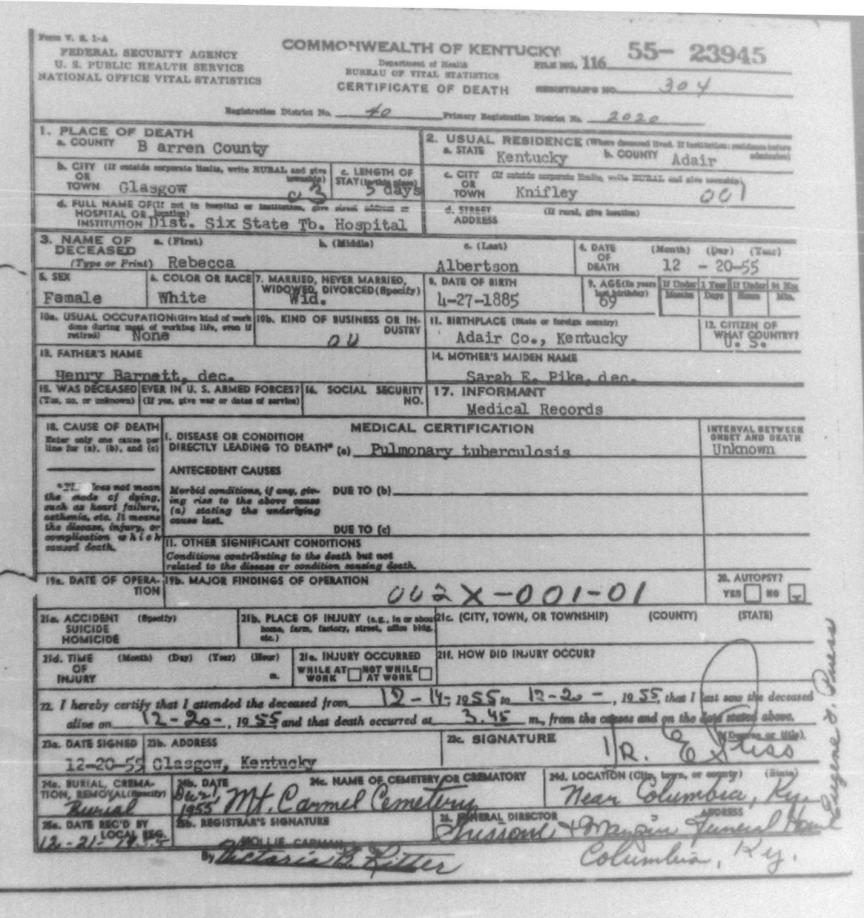 Form V. S. 1-A
FEDERAL SECURITY AGENCY
U. S. PUBLIC HEALTH SERVICE
NATIONAL OFFICE VITAL STATISTICS
COMMONWEALTH OF KENTUCKY
Department of Health
BUREAU OF VITAL STATISTICS
CERTIFICATE OF DEATH
FILE NO. 116 55- 23945
REGISTRAR'S NO. 304
Registration District No. 40 Primary Registration District No. 2020
1. PLACE OF DEATH
a. COUNTY B arren County
2. USUAL RESIDENCE (Where deceased lived. If institution: residence before admission)
a. STATE Kentucky b. COUNTY Adair
b. CITY (If outside corporate limits, write RURAL and give township)
OR TOWN Glasgow 03
c. LENGTH OF STAY (in this place) 5 days
c. CITY (If outside corporate limits, write RURAL and give township)
OR TOWN Knifley 001
d. FULL NAME OF (If not in hospital or institution, give street address or location)
HOSPITAL OR INSTITUTION Dist. Six State Tb. Hospital
d. STREET ADDRESS (If rural, give location)
3. NAME OF DECEASED (Type or Print) a. (First) b. (Middle) c. (Last)
Rebecca Albertson
4. DATE OF DEATH (Month) (Day) (Year)
12 - 20-55
5. SEX
Female
6. COLOR OR RACE
White
7. MARRIED, NEVER MARRIED, WIDOWED, DIVORCED (Specify)
Wid.
8. DATE OF BIRTH
4-27-1885
9. AGE (In years last birthday) If Under 1 Year If Under 24 Hrs.
Months Days Hours Min.
69
10a. USUAL OCCUPATION (Give kind of work done during most of working life, even if retired)
None
10b. KIND OF BUSINESS OR INDUSTRY
11. BIRTHPLACE (State or foreign country)
Adair Co., Kentucky
12. CITIZEN OF WHAT COUNTRY?
U. S.
13. FATHER'S NAME
Henry Barnett, dec.
14. MOTHER'S MAIDEN NAME
Sarah E. Pike, dec.
15. WAS DECEASED EVER IN U. S. ARMED FORCES?
(Yes, no, or unknown) (If yes, give war or dates of service)
16. SOCIAL SECURITY NO.
17. INFORMANT
Medical Records
18. CAUSE OF DEATH
Enter only one cause per line for (a), (b), and (c)
MEDICAL CERTIFICATION
INTERVAL BETWEEN ONSET AND DEATH
I. DISEASE OR CONDITION
DIRECTLY LEADING TO DEATH* (a) Pulmonary tuberculosis
Unknown
ANTECEDENT CAUSES
*This does not mean the mode of dying, such as heart failure, asthenia, etc. It means the disease, injury, or complication which caused death.
Morbid conditions, if any, giving rise to the above cause (a) stating the underlying cause last.
DUE TO (b)
DUE TO (c)
II. OTHER SIGNIFICANT CONDITIONS
Conditions contributing to the death but not related to the disease or condition causing death.
19a. DATE OF OPERATION
19b. MAJOR FINDINGS OF OPERATION
002X-001-01
20. AUTOPSY?
YES NO
21a. ACCIDENT SUICIDE HOMICIDE (Specify)
21b. PLACE OF INJURY (e.g., in or about home, farm, factory, street, office bldg. etc.)
21c. (CITY, TOWN, OR TOWNSHIP) (COUNTY) (STATE)
21d. TIME OF INJURY (Month) (Day) (Year) (Hour) m.
21e. INJURY OCCURRED
WHILE AT WORK NOT WHILE AT WORK
21f. HOW DID INJURY OCCUR?
22. I hereby certify that I attended the deceased from 12-14-1955 to 12-20-, 1955, that I last saw the deceased
alive on 12-20-, 1955 and that death occurred at 3.45 m., from the causes and on the date stated above.
23a. DATE SIGNED
12-20-55
23b. ADDRESS
Glasgow, Kentucky
23c. SIGNATURE (Degree or title)
24a. BURIAL, CREMATION, REMOVAL (Specify)
Burial
24b. DATE
1955
24c. NAME OF CEMETERY OR CREMATORY
Mt. Carmel Cemetery
24d. LOCATION (City, town, or county) (State)
Near Columbia, Ky.
25a. DATE REC'D BY LOCAL REG.
12-21-1955
25b. REGISTRAR'S SIGNATURE
By
26. FUNERAL DIRECTOR ADDRESS
Funeral Home
Columbia, Ky.